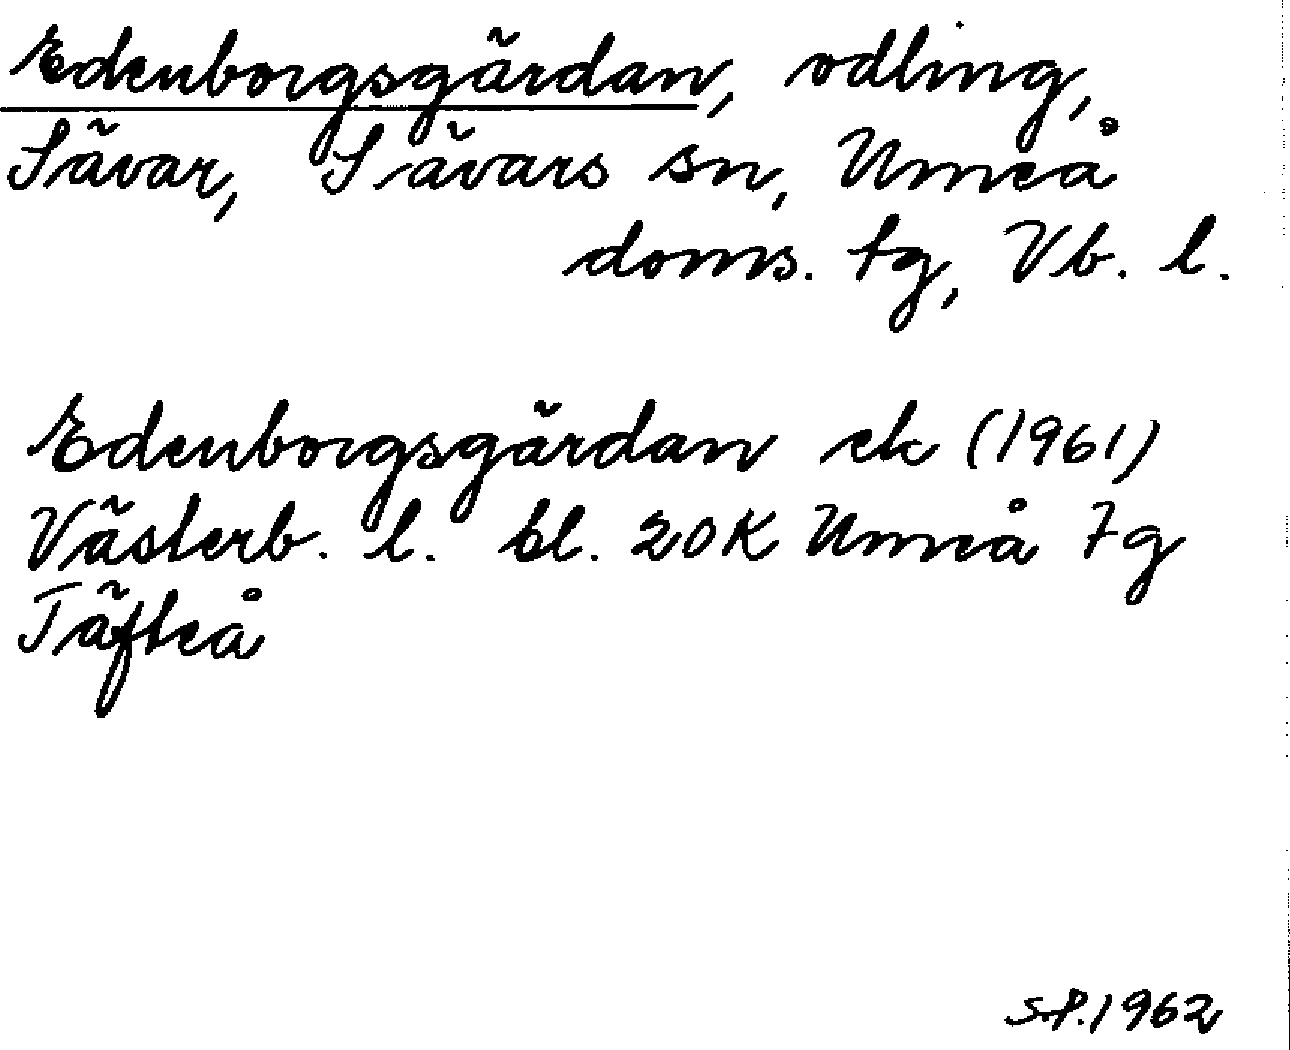 Edenborgsgärdan, odling,
Sävar, Sävars sn, Umeå
doms. tg, Vb. l.
Edenborgsgärdan ek (1961)
Västerb. l. bl. 20K Umeå 7g
Täfteå
S.P. 1962